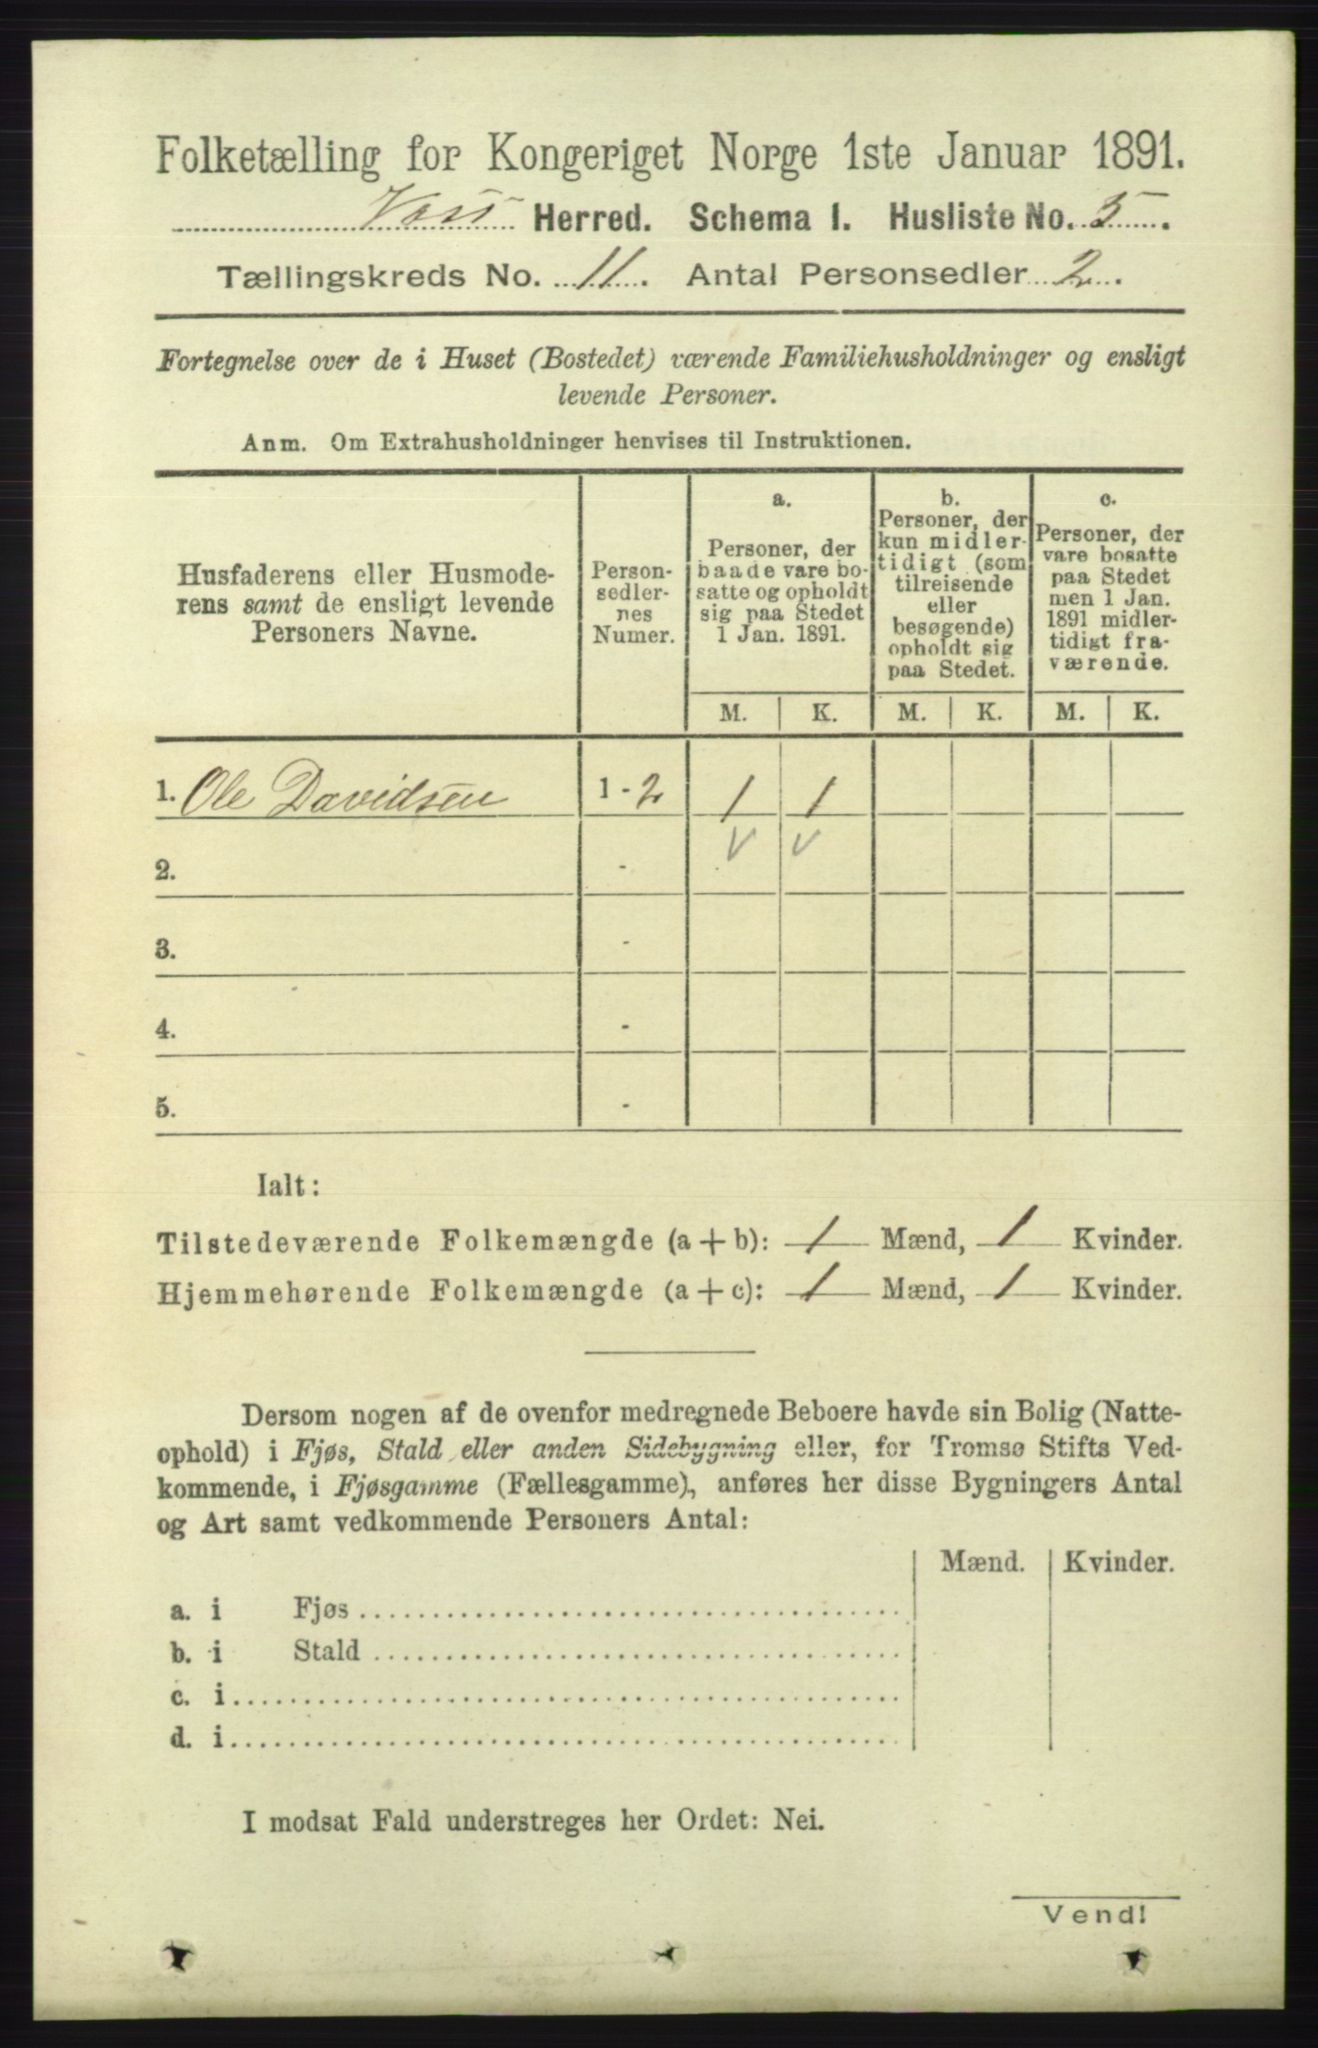 Folketælling for Kongeriget Norge 1ste Januar 1891.
Voss Herred. Schema 1. Husliste No. 5.
Tællingskreds No. 11. Antal Personsedler 2.
Fortegnelse over de i Huset (Bostedet) værende Familiehusholdninger og ensligt
levende Personer.
Anm. Om Extrahusholdninger henvises til Instruktionen.
Husfaderens eller Husmode-
rens samt de ensligt levende
Personers Navne.
Person-
sedler-
nes
Numer.
a.
Personer, der
baade vare bo-
satte og opholdt
sig paa Stedet
1 Jan. 1891.
b.
Personer, der
kun midler-
tidigt (som
tilreisende
eller
besøgende)
opholdt sig
paa Stedet.
c.
Personer, der
vare bosatte
paa Stedet
men 1 Jan.
1891 midler-
tidigt fra-
værende.
M. K. M. K. M. K.
1. Ole Davidsen 1 - 2 1 1
2. - V V
3. -
4. -
5. -
Ialt:
Tilstedeværende Folkemængde (a + b): 1 Mænd, 1 Kvinder.
Hjemmehørende Folkemængde (a + c): 1 Mænd, 1 Kvinder.
Dersom nogen af de ovenfor medregnede Beboere havde sin Bolig (Natte-
ophold) i Fjøs, Stald eller anden Sidebygning eller, for Tromsø Stifts Ved-
kommende, i Fjøsgamme (Fællesgamme), anføres her disse Bygningers Antal
og Art samt vedkommende Personers Antal:
Mænd. Kvinder.
a. i Fjøs
b. i Stald
c. i
d. i
I modsat Fald understreges her Ordet: Nei.
Vend!